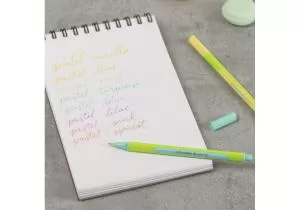 pastel vanilla
pastel lime
pastel
pastel turquoise
pastel blue
pastel lilac
pastel pink
pastel apricot